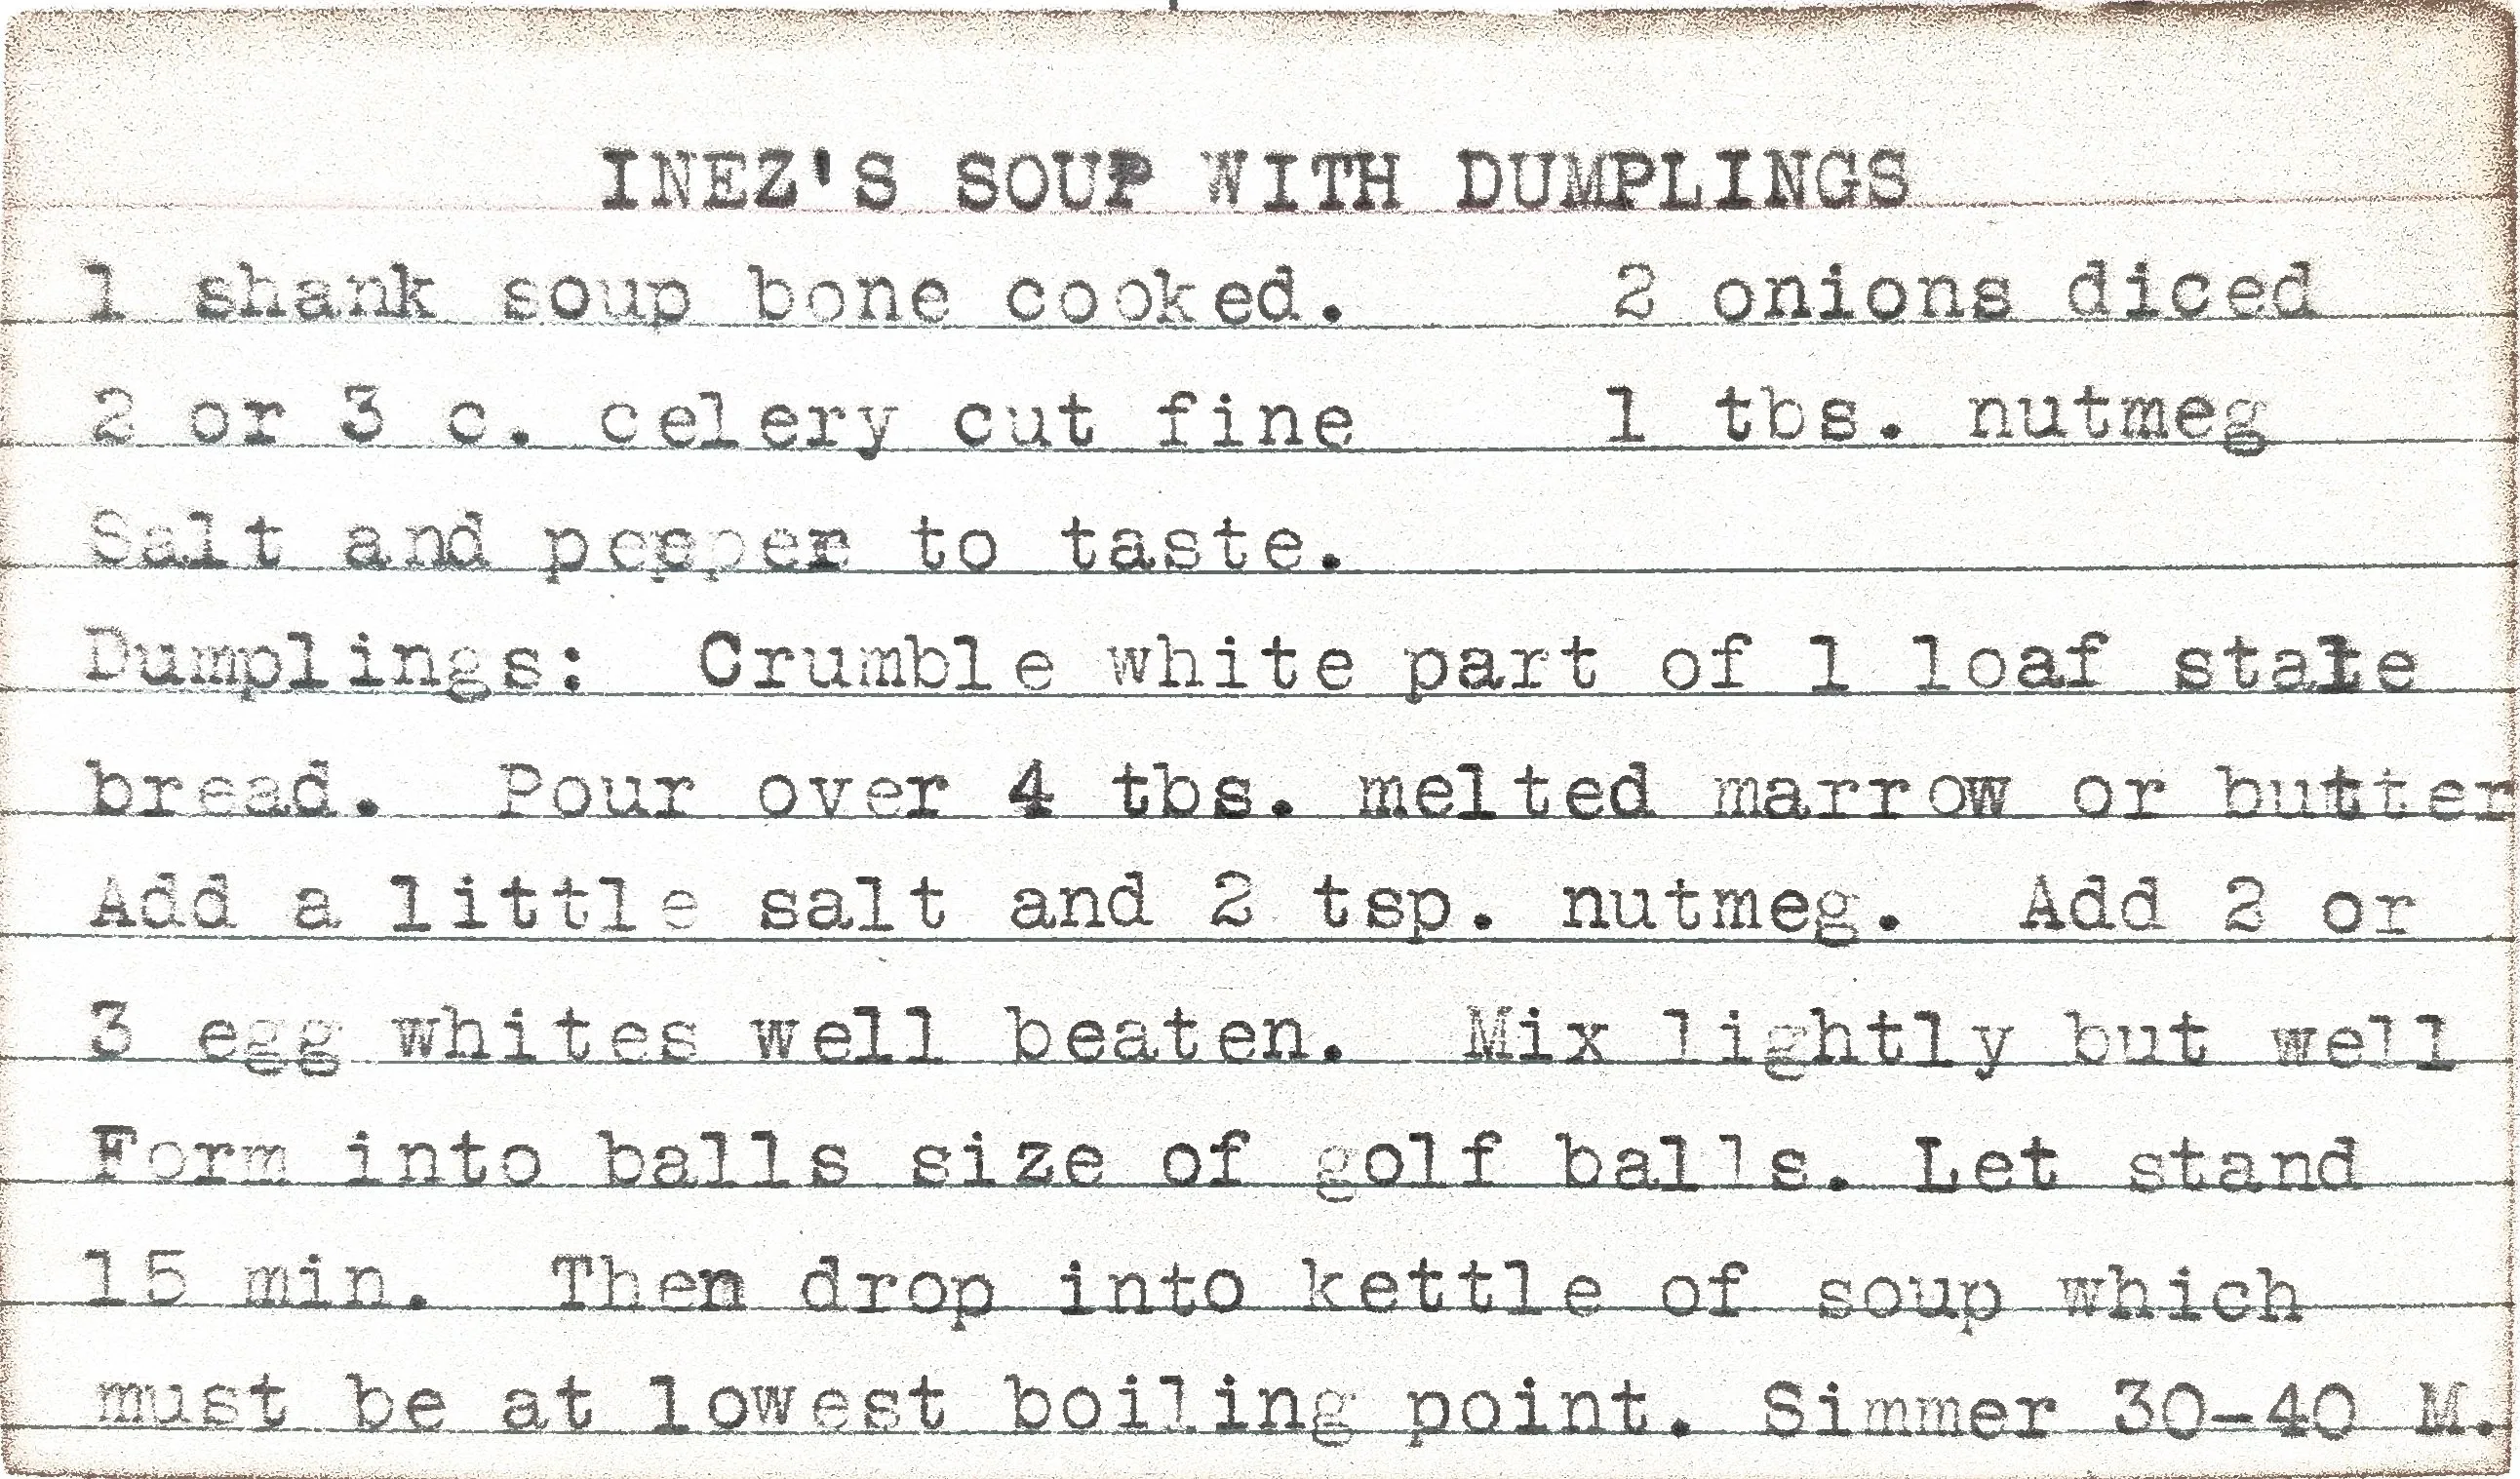 INEZ'S SOUP WITH DUMPLINGS
1 shank soup bone cooked. 2 onions diced
2 or 3 c. celery cut fine 1 tbs. nutmeg
Salt and pepper to taste.
Dumplings: Crumble white part of 1 loaf stale
bread. Pour over 4 tbs. melted marrow or butter
Add a little salt and 2 tsp. nutmeg. Add 2 or
3 egg whites well beaten. Mix lightly but well
Form into balls size of golf balls. Let stand
15 min. Then drop into kettle of soup which
must be at lowest boiling point. Simmer 30-40 M.